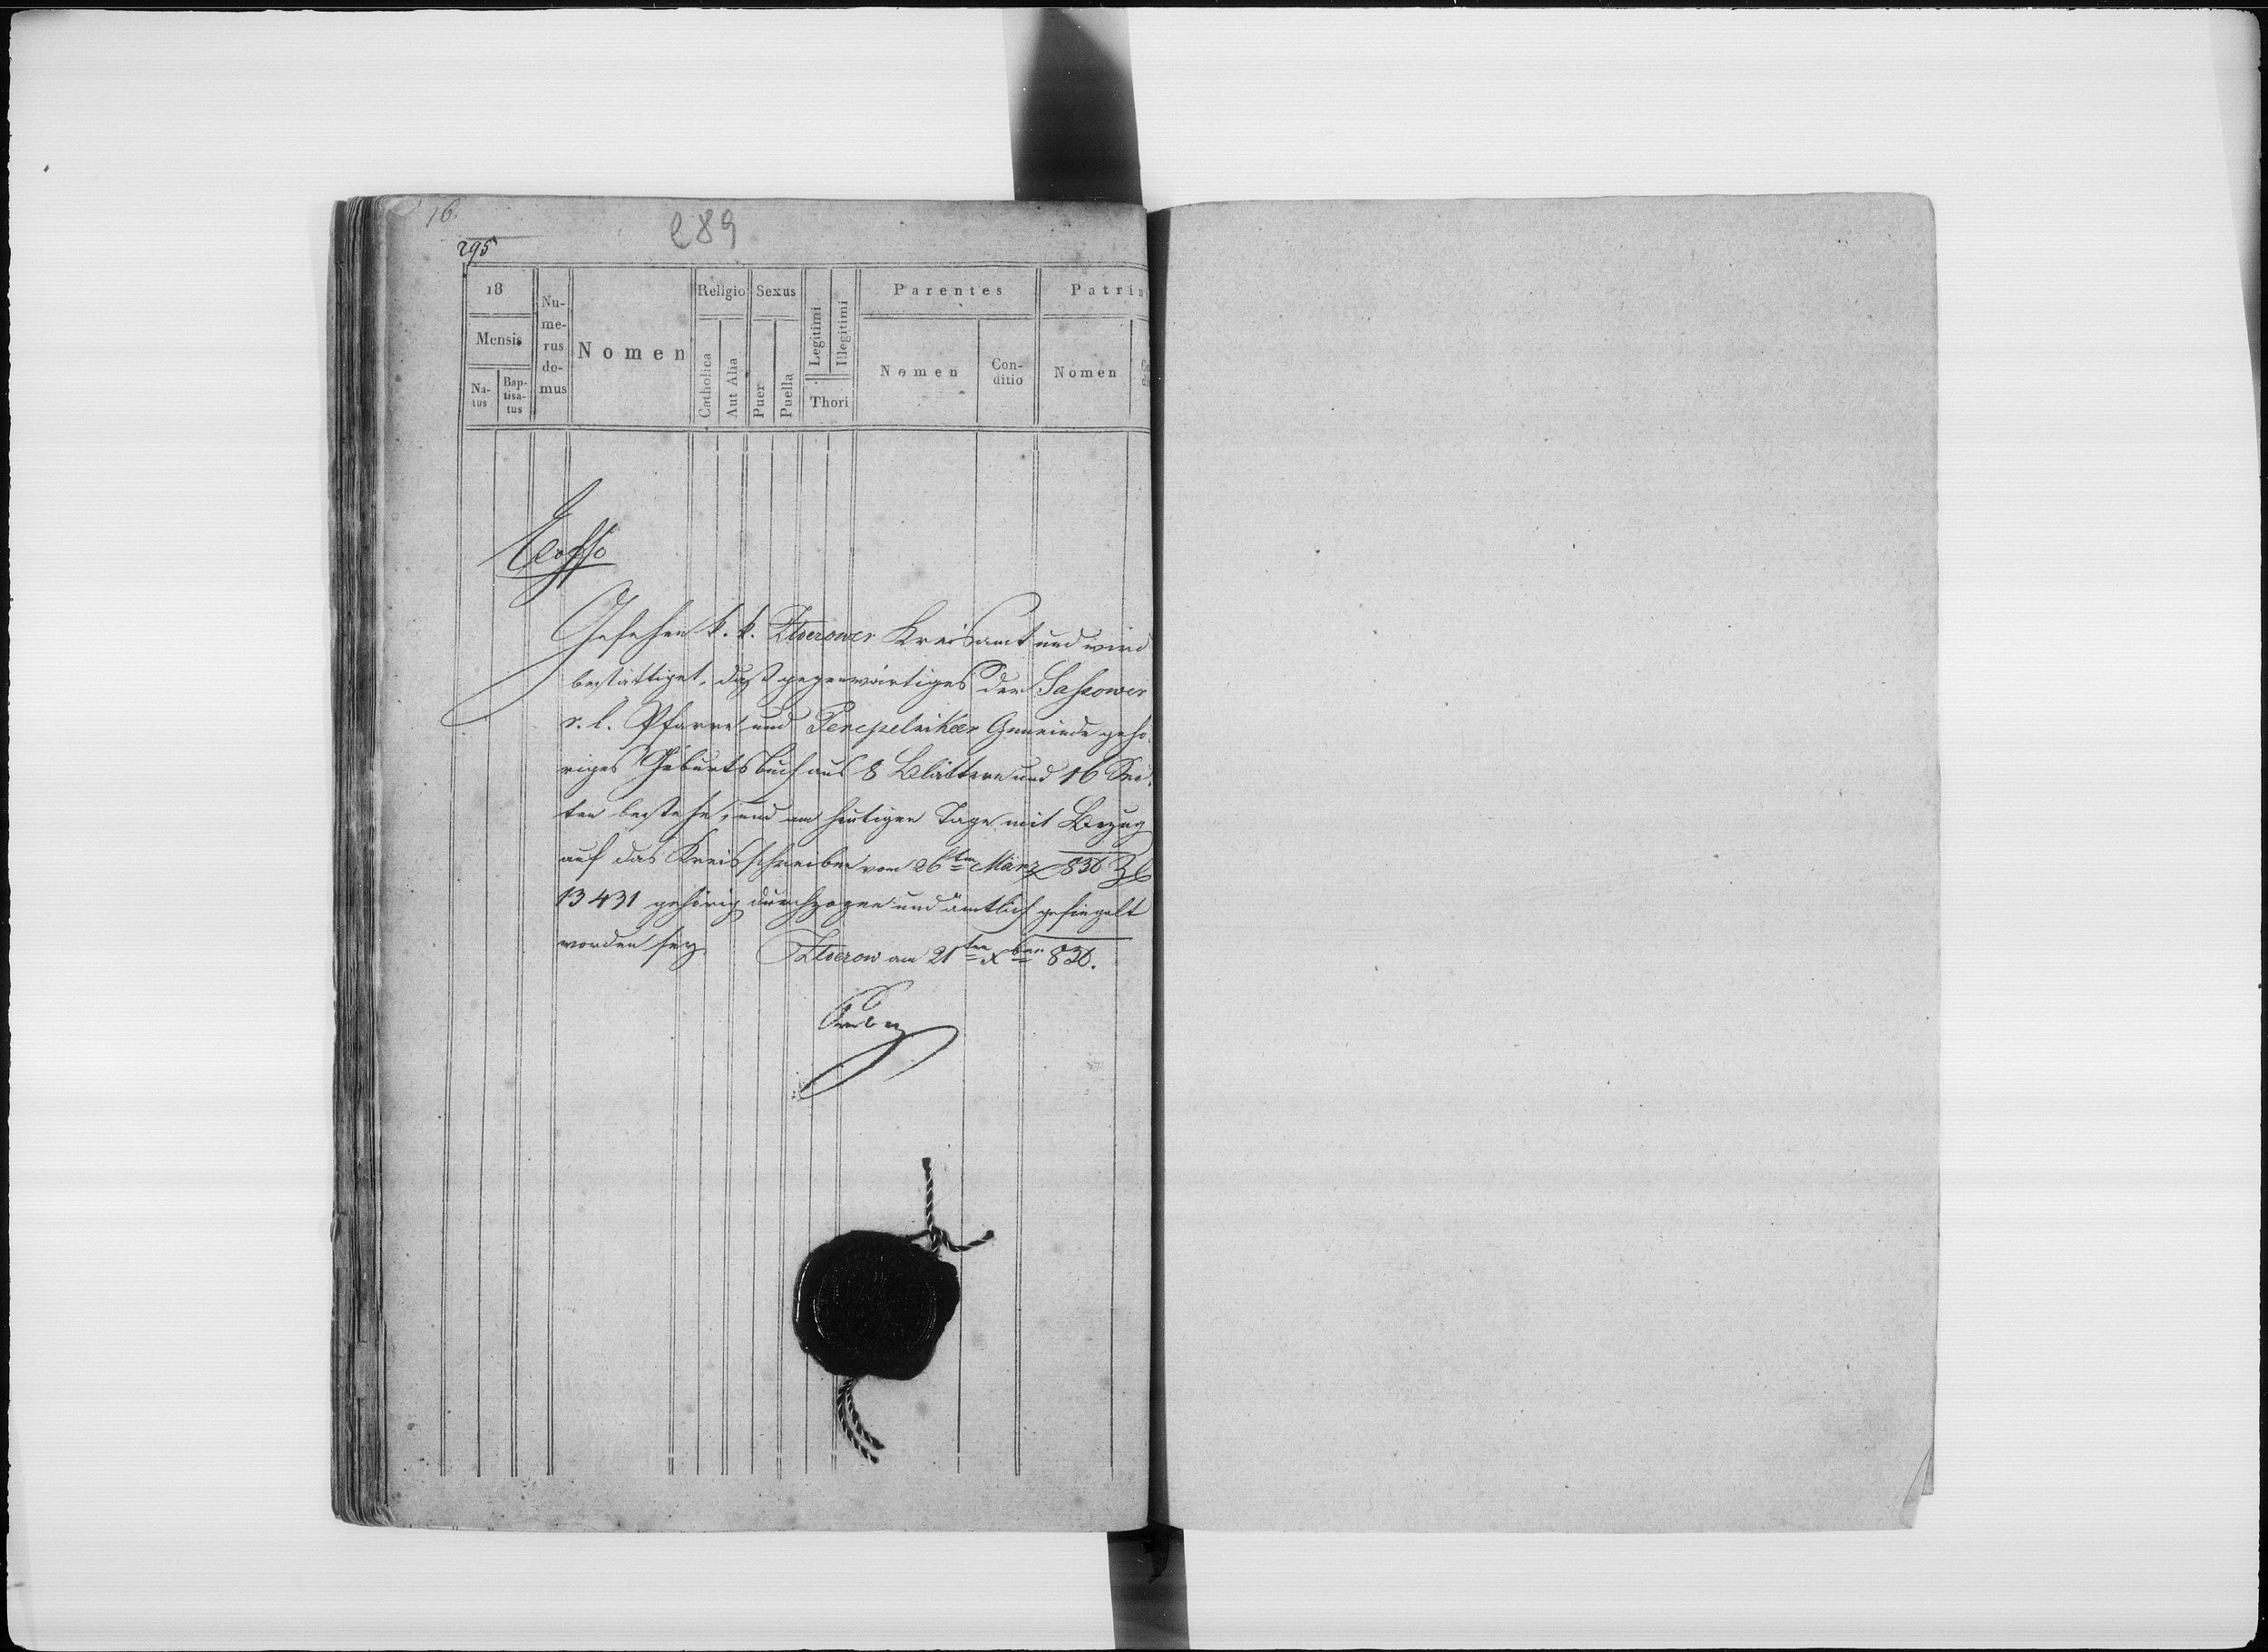 16
295
289
18
Mensis
Na-
tus
Bap-
tisa-
tus
Nu-
me-
rus
do-
mus
Nomen
Religio
Catholica
Aut Alia
Sexus
Puer
Puella
Legitimi
Illegitimi
Thori
Parentes
Nomen
Con-
ditio
Patrin
Nomen
Gesehen k. k. Złoczower Kreisamt und wird
bestättiget, daß gegenwärtiges der Sassower
r. l. Pfarre und Perepelniker Gemeinde gehö-
riges Geburtsbuch aus 8 Blättern und 16 Sei-
ten bestehe, und am heutigen Tage mit Bezug
auf das Kreisschreiben vom 26ten März 836 Zl
13431 gehörig durchzogen und ämtlich gesiegelt
worden sey.
Złoczow am 21ten Xber 836.